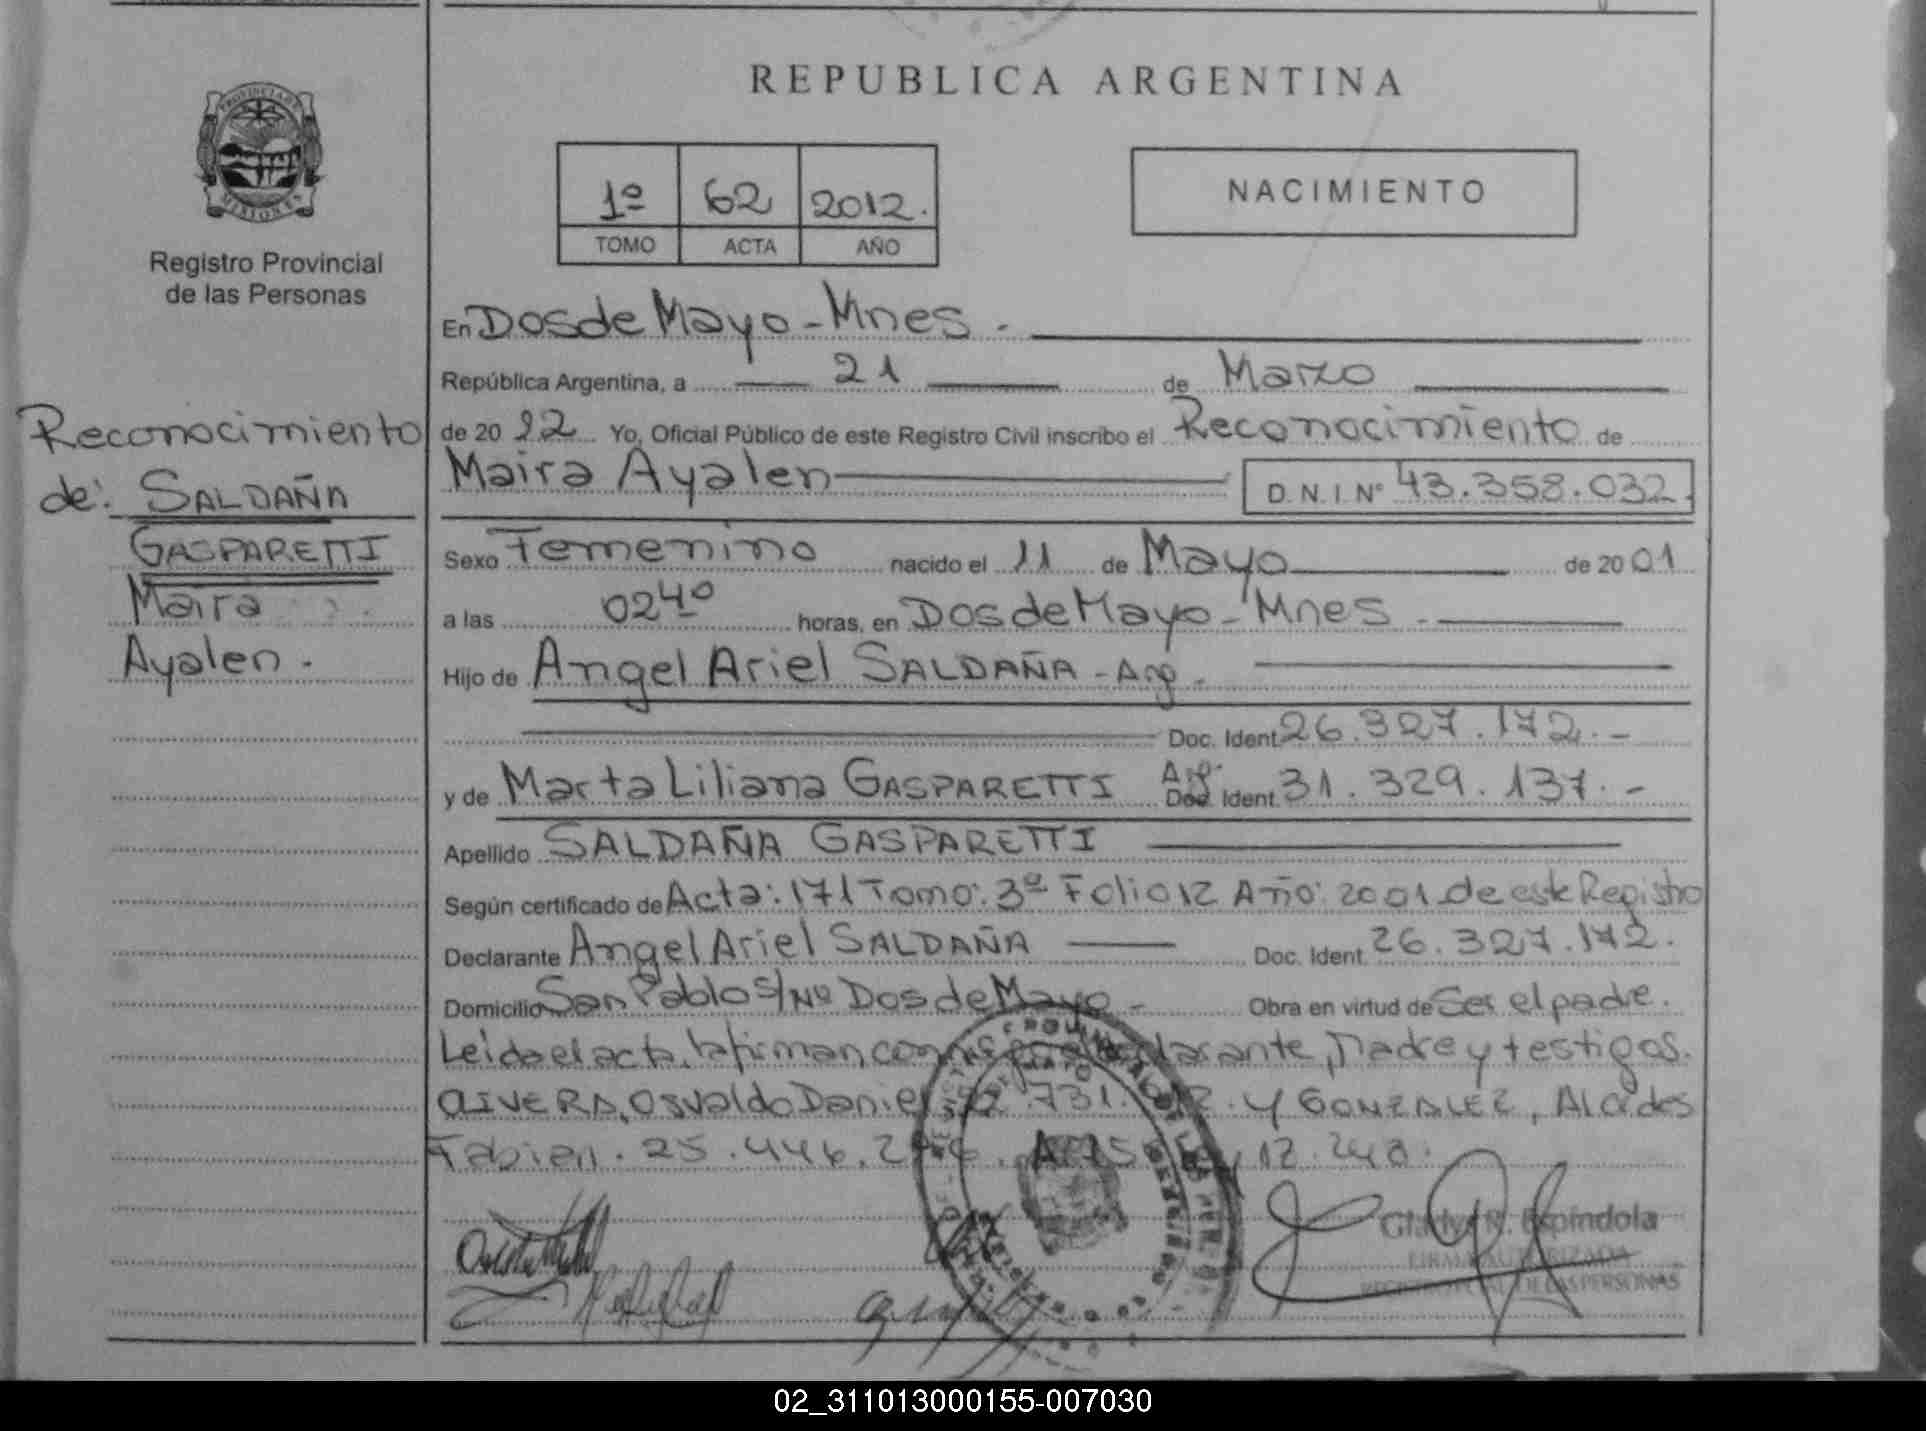 REPUBLICA ARGENTINA
PROVINCIA DE
MISIONES
Registro Provincial
de las Personas
1º 62 2012.
TOMO ACTA AÑO
NACIMIENTO
Reconocimiento
de: SALDAÑA
GASPARETTI
Maira
Ayalen.
En Dos de Mayo - Mnes.
República Argentina, a 21 de Marzo
de 20 Yo, Oficial Público de este Registro Civil inscribo el Reconocimiento de
Maira Ayalen D.N.I Nº 43.358.032.
Sexo Femenino nacido el 11 de Mayo de 2001
a las 02⁴⁰ horas, en Dos de Mayo - Mnes.
Hijo de Angel Ariel SALDAÑA - Arg.
Doc. Ident. 26.327.172.-
y de Marta Liliana GASPARETTI Arg. Doc. Ident. 31.329.137.-
Apellido SALDAÑA GASPARETTI
Según certificado de Acta: 171 Tomo: 3º Folio 12 Año: 2001 de este Registro
Declarante Angel Ariel SALDAÑA Doc. Ident. 26.327.172.
Domicilio San Pablo S/Nº Dos de Mayo - Obra en virtud de Ser el padre.
Leida el acta, la firman, declarante, madre y testigos.
Osvaldo Daniel 731. Y GONZALEZ, Alcides
Fabian. 25.446.
Gladys R. Espíndola
FIRMA AUTORIZADA
DE LAS PERSONAS
02_311013000155-007030